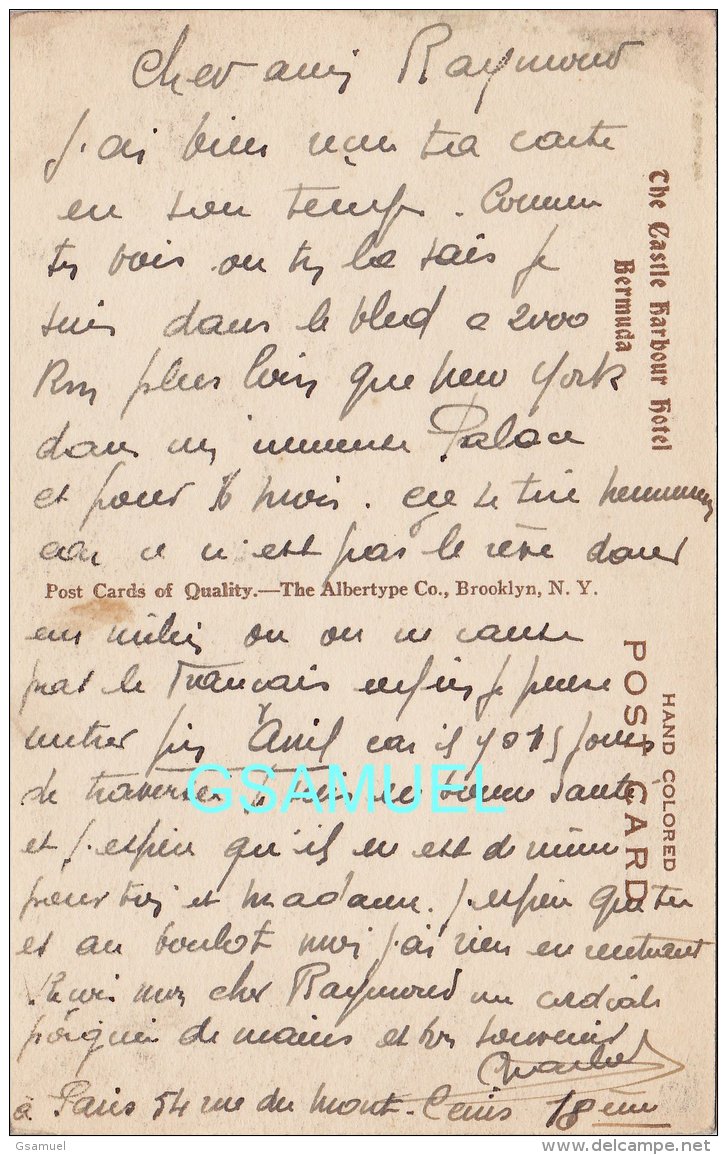 Cher ami Raymond
J'ai bien reçu ta carte
en son temps. Comme
tu vois ou tu le sais je
suis dans le bled a 2000
Km plus loin que New York
dans un immense Palace
et pour 6 mois.
car ce n'est pas le rêve dans
un milieu ou on ne cause
pas le Français enfin je pense
rentrer fin Avril car il y a 15 jours
de traversée je suis en bonne santé
et j'espère qu'il en est de même
pour toi et madame. J'espère que tu
es au boulot moi j'ai rien en rentrant
Reçois mon cher Raymond un cordiale
poignée de mains et bon souvenir
à Paris 54 rue du Mont-Cenis 18ème
The Castle Harbour Hotel
Bermuda
Post Cards of Quality.—The Albertype Co., Brooklyn, N. Y.
HAND COLORED
POST CARD
GSAMUEL
Gsamuel
www.delcampe.net